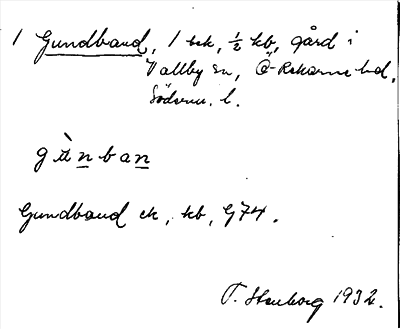 1 Gundband, 1 ek, ½ kb, gård i
Vallby sn, Ö-Rekarne hd,
Söderm. l.
gùnban
Gundband ek, kb, G74.
T. Stenborg 1932.